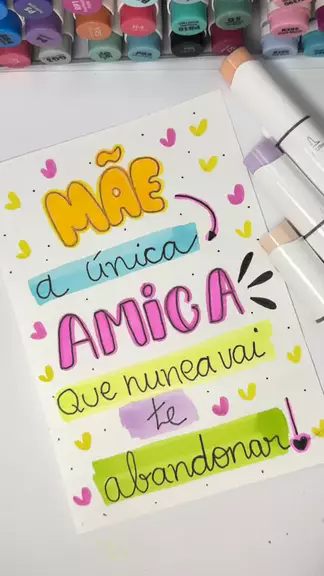 MÃE
a única
AMIGA
Que nunca vai
te
abandonar!